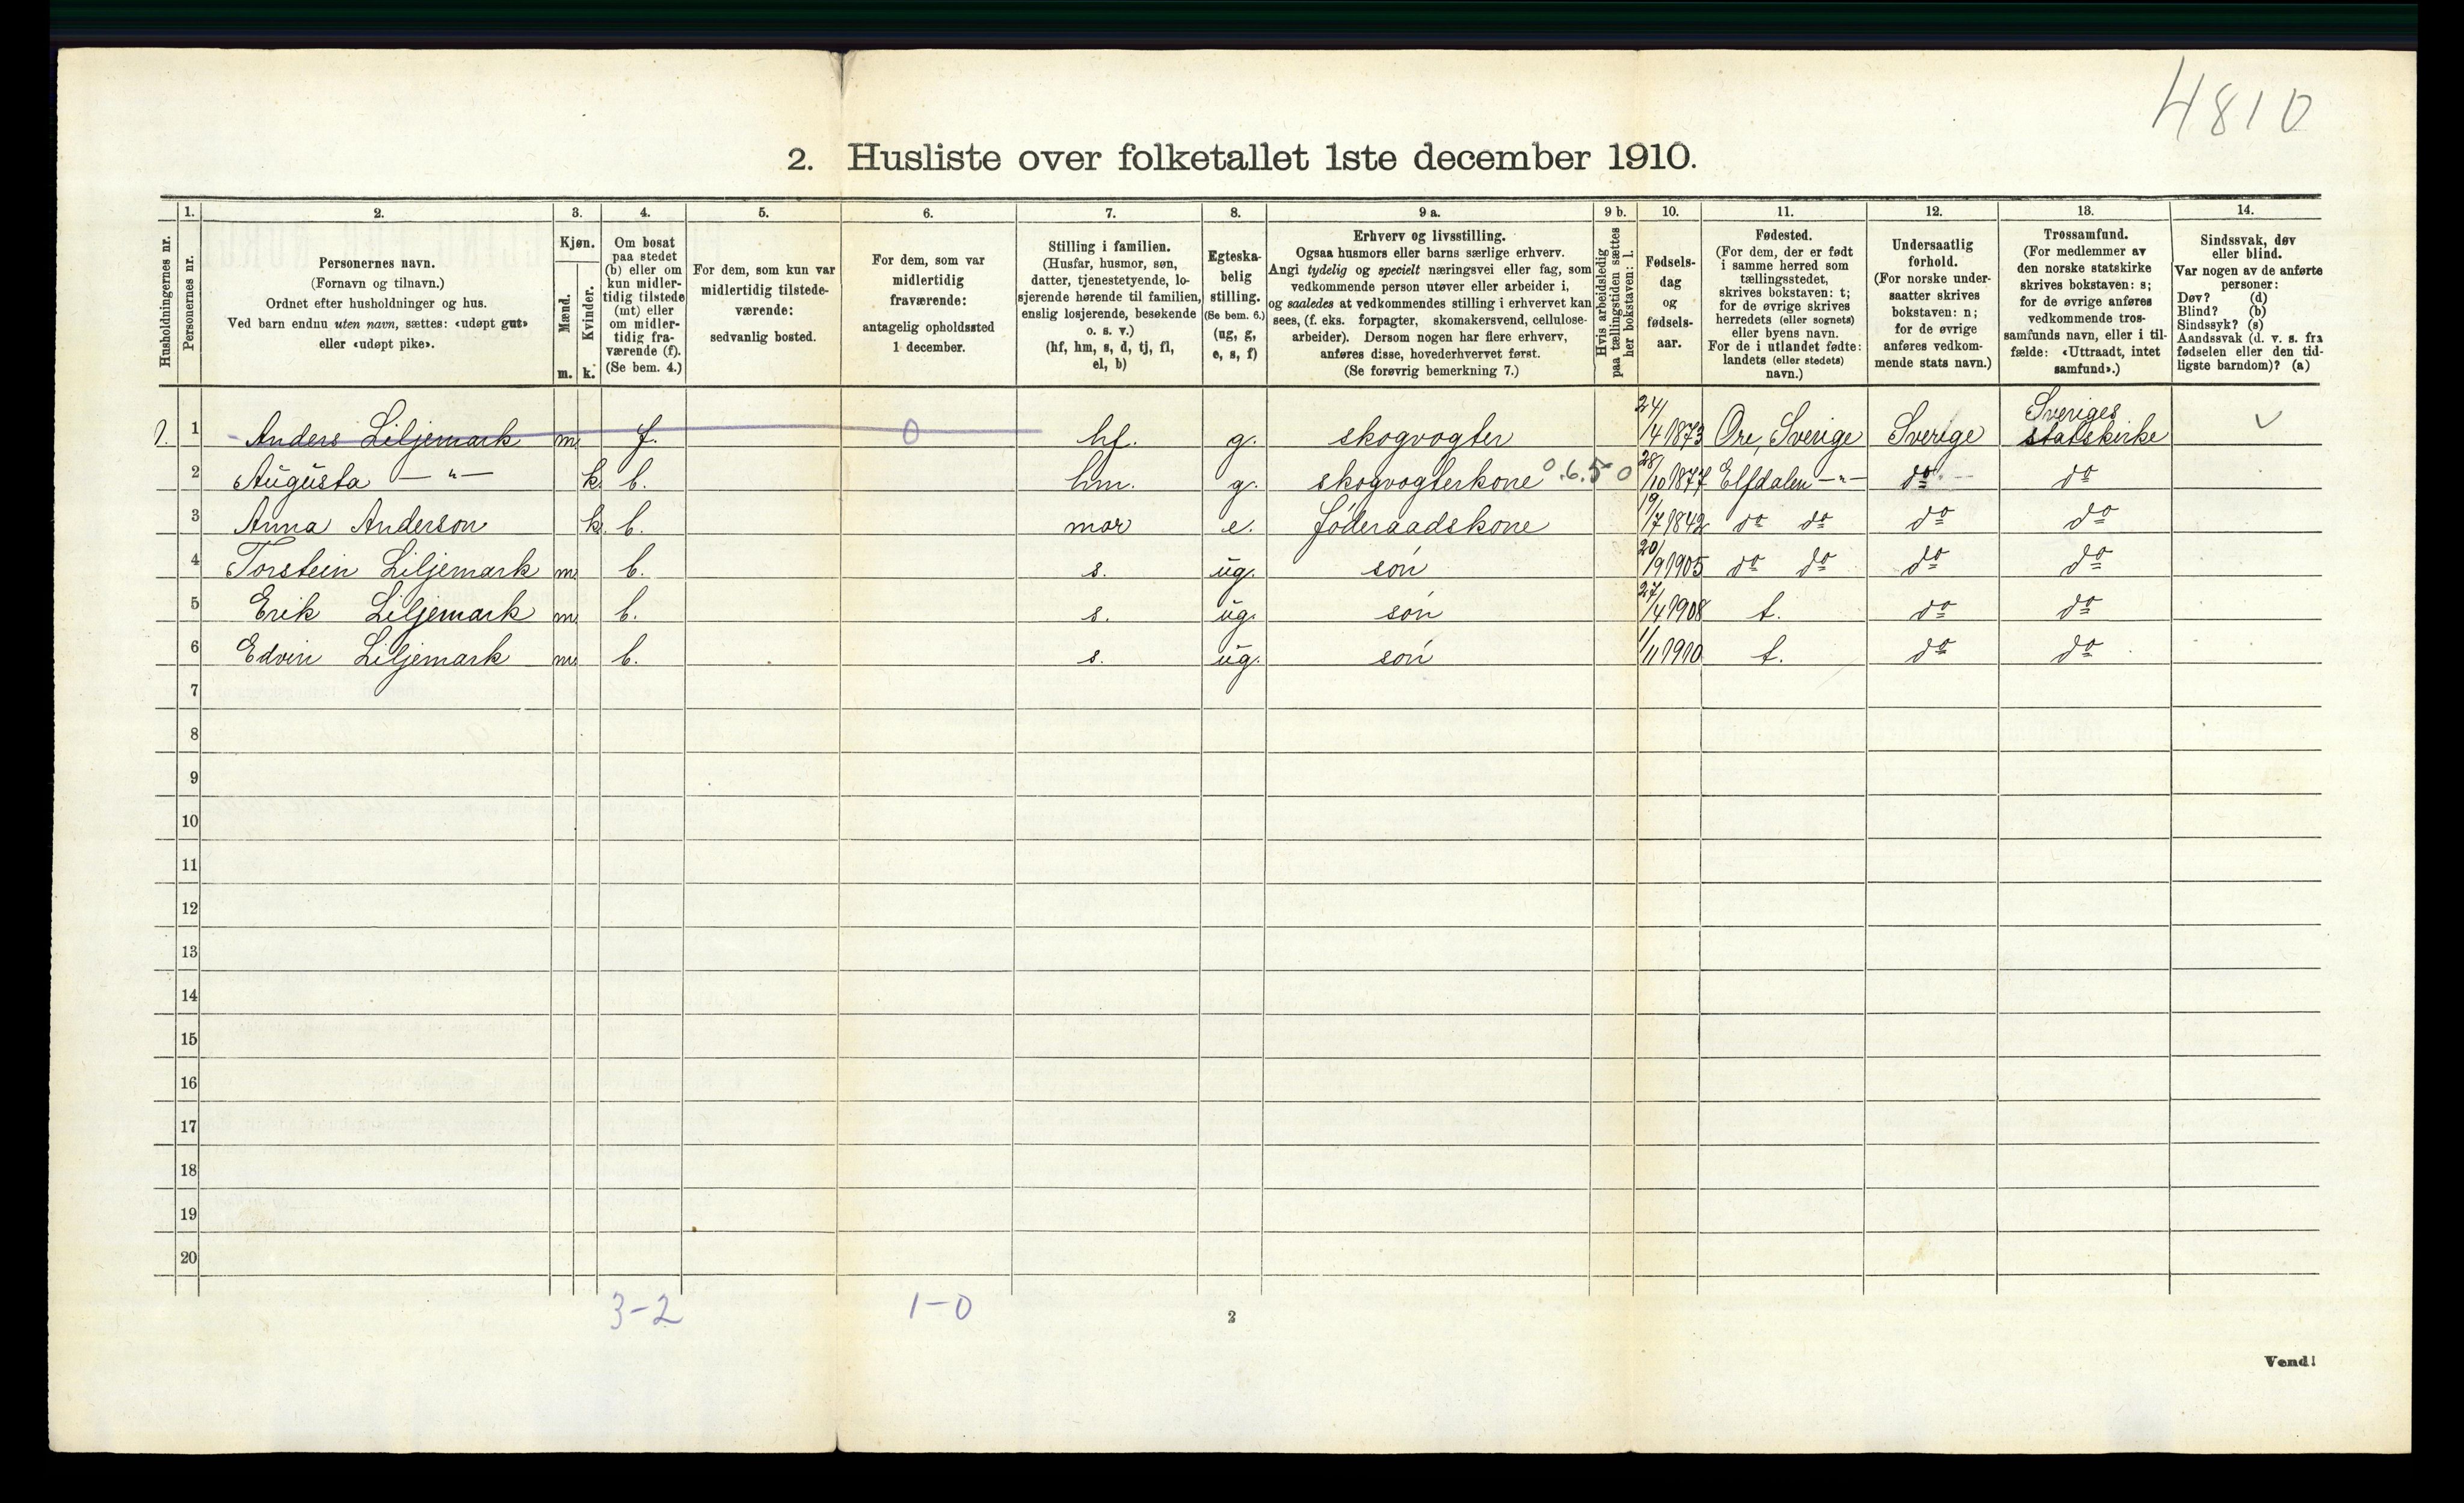 4810
2. Husliste over folketallet 1ste december 1910.
Husholdningernes nr.
1. Personernes nr.
2. Personernes navn. (Fornavn og tilnavn.) Ordnet efter husholdninger og hus. Ved barn endnu uten navn, sættes: «udøpt gut» eller «udøpt pike».
3. Kjøn. Mænd. m. Kvinder. k.
4. Om bosat paa stedet (b) eller om kun midlertidig tilstede (mt) eller om midlertidig fraværende (f). (Se bem. 4.)
5. For dem, som kun var midlertidig tilstedeværende: sedvanlig bosted.
6. For dem, som var midlertidig fraværende: antagelig opholdssted 1 december.
7. Stilling i familien. (Husfar, husmor, søn, datter, tjenestetyende, losjerende hørende til familien, enslig losjerende, besøkende o. s. v.) (hf, hm, s, d, tj, fl, el, b)
8. Egteskabelig stilling. (Se bem. 6.) (ug, g, e, s, f)
9 a. Erhverv og livsstilling. Ogsaa husmors eller barns særlige erhverv. Angi tydelig og specielt næringsvei eller fag, som vedkommende person utøver eller arbeider i, og saaledes at vedkommendes stilling i erhvervet kan sees, (f. eks. forpagter, skomakersvend, cellulosearbeider). Dersom nogen har flere erhverv, anføres disse, hovederhvervet først. (Se forøvrig bemerkning 7.)
9 b. Hvis arbeidsledig paa tællingstiden sættes her bokstaven: l.
10. Fødselsdag og fødselsaar.
11. Fødested. (For dem, der er født i samme herred som tællingsstedet, skrives bokstaven: t; for de øvrige skrives herredets (eller sognets) eller byens navn. For de i utlandet fødte: landets (eller stedets) navn.)
12. Undersaatlig forhold. (For norske undersaatter skrives bokstaven: n; for de øvrige anføres vedkommende stats navn.)
13. Trossamfund. (For medlemmer av den norske statskirke skrives bokstaven: s; for de øvrige anføres vedkommende trossamfunds navn, eller i tilfælde: «Uttraadt, intet samfund».)
14. Sindssvak, døv eller blind. Var nogen av de anførte personer: Døv? (d) Blind? (b) Sindssyk? (s) Aandssvak (d. v. s. fra fødselen eller den tidligste barndom)? (a)
1. 1 Anders Liljemark m. f. 0 hf. g. skogvogter 24/4 1873 Ore, Sverige Sverige Sveriges statskirke
2 Augusta —"— k. b. hm. g. skogvogterkone 0.6.50 28/10 1877 Elfdalen —"— do do
3 Anna Anderson k. b. mor e. føderaadskone 19/7 1842 do do do do
4 Torstein Liljemark m. b. s. ug. søn 20/9 1905 do do do do
5 Erik Liljemark m. b. s. ug. søn 27/4 1908 t. do do
6 Edvin Liljemark m. b. s. ug. søn 1/11 1910 t. do do
7
8
9
10
11
12
13
14
15
16
17
18
19
20
3-2 1-0
2
Vend!